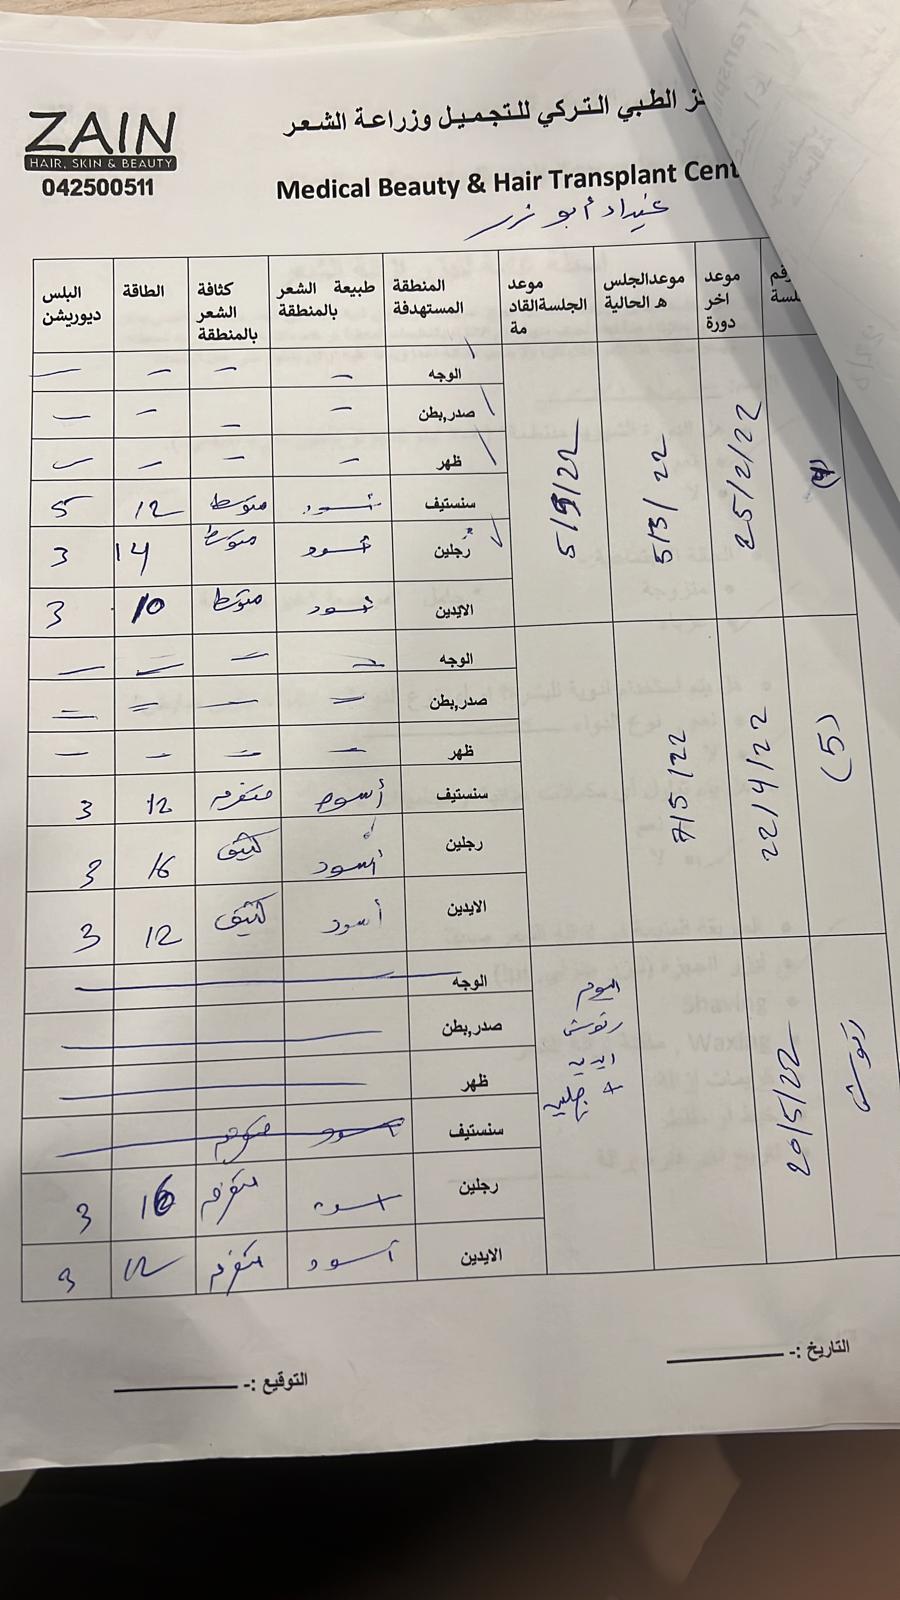 ZAIN
HAIR, SKIN & BEAUTY
042500511
الطبي التركي للتجميل وزراعة الشعر
Medical Beauty & Hair Transplant Cent
أبو
موعد اخر دورة | موعدالجلس ه الحالية | موعد الجلسةالقاد مة | المنطقة المستهدفة | طبيعة الشعر بالمنطقة | كثافة الشعر بالمنطقة | الطاقة | البلس ديوريشن
25/2/22 | 5/3/22
الوجه | - | - | - | -
صدر,بطن | - | - | - | -
ظهر | - | - | - | -
سنستيف | أسود | متوسط | 12 | 5
رجلين | أسود | متوسط | 14 | 3
الايدين | أسود | متوسط | 10 | 3
(5) | 22/4/22 | 7/5/22
الوجه | - | - | - | -
صدر,بطن | - | - | - | -
ظهر | - | - | - | -
سنستيف | أسود | متفرم | 12 | 3
رجلين | أسود | كثيف | 16 | 3
الايدين | أسود | كثيف | 12 | 3
رتوش | 20/5/22 | اليوم رتوش
الوجه
صدر,بطن
ظهر
سنستيف | اسود
رجلين | اسود | 16 | 3
الايدين | أسود | 12 | 3
التاريخ :-
التوقيع :-